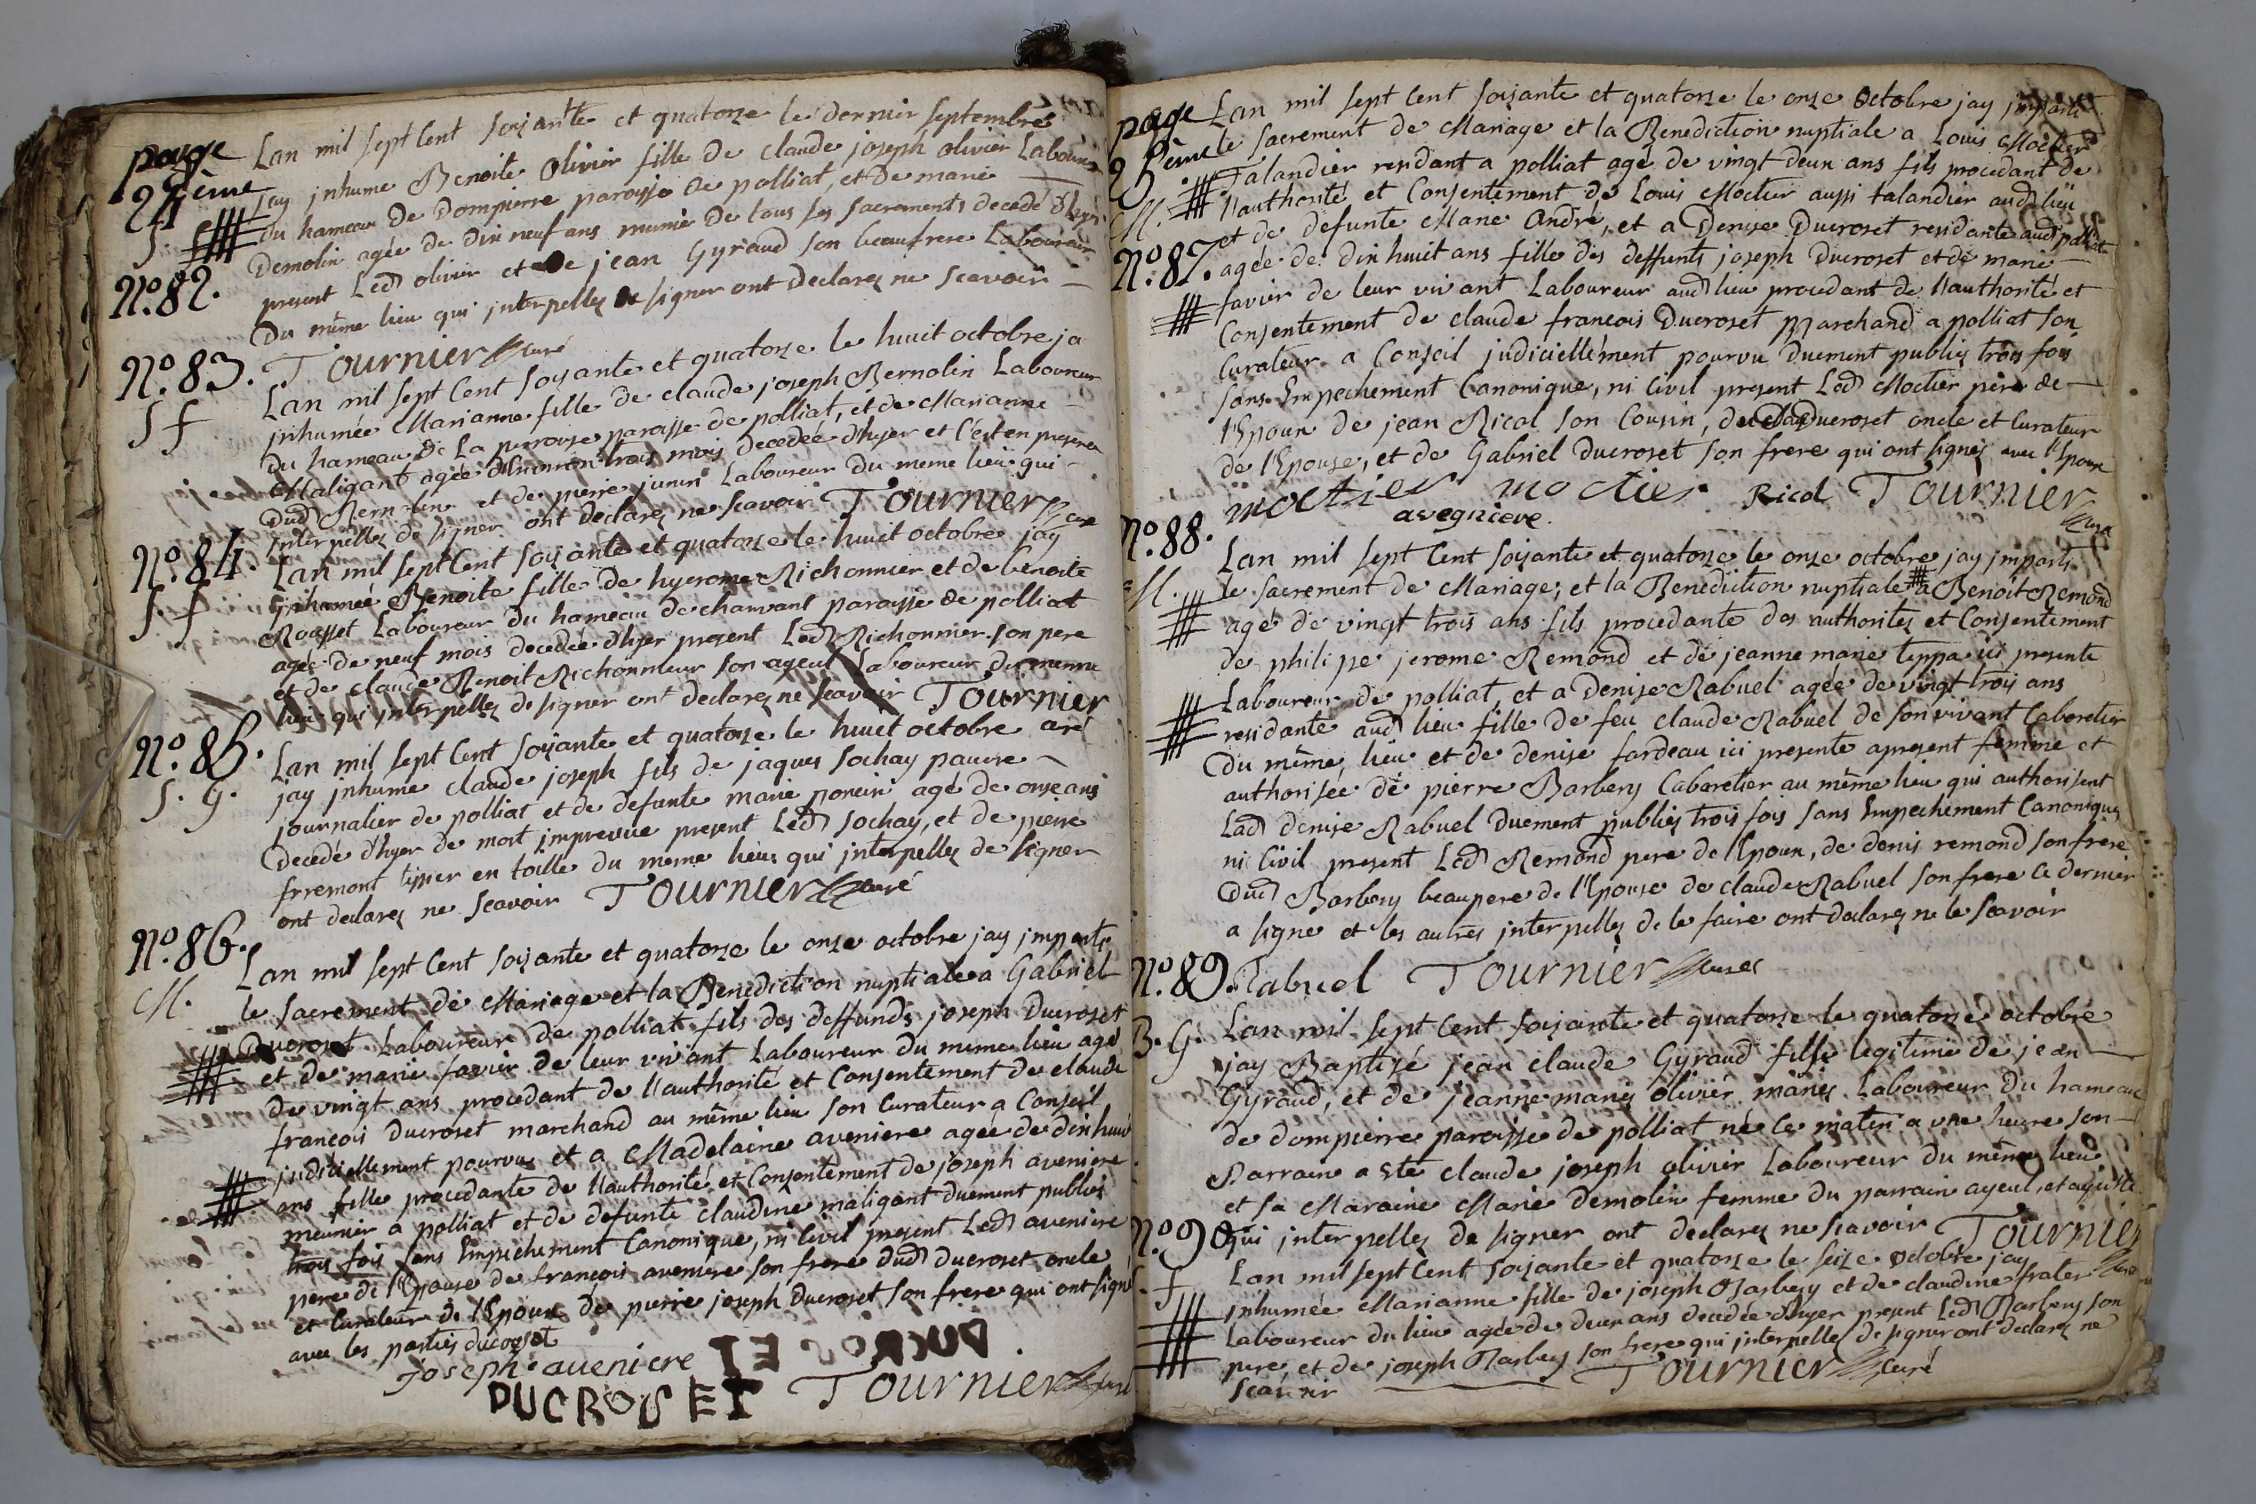 page
24ème
Lan mil sept Cent soixante et quatorze le dernier septembre
jay jnhume Benoite Olivier fille de claude joseph olivier Laboureur
S. f
du hameau de Dompierre paroisse de polliat, et de marie
Demolin agée de dix neuf ans munie de tous ses sacrements decedé d'hyer
No. 82.
present Led olivier et de jean Gyraud son beaufrere Laboureur
du même lieu qui jnterpellez de signer ont declarez ne scavoir
TOURNIER curé
No. 83.
Lan mil sept Cent soixante et quatorze le huict octobre ja
S f
jnhumée Marianne fille de claude joseph Bernolin Laboureur
du hameau de La perrouse paroisse de polliat, et de Marianne
Maligant agée d'Environ trois mois decedée d'hyer et C'est en presence
Dud Bern lin et de pierre junin Laboureur Du meme lieu qui
jnterpellez de signer ont declarez ne scavoir TOURNIER curé
No. 84.
Lan mil sept Cent soixante et quatorze le huict octobre jay
S. f
jnhameé Benoite fille de hyerome Richonnier et de benoite
Rousset Laboureur du hameau de chamvant paroisse de polliat
agée de neuf mois decedée d'hyer present Led Richonnier son pere
et de claude Benoit Richonnieur son ayeul Laboureur du meme
lieu qui jnterpellez de signer ont declarez ne scavoir TOURNIER
curé
No. 85.
Lan mil sept Cent soixante et quatorze le huict octobre
S. G.
jay jnhume claude joseph fils de jaques sochay pauvre
journalier de polliat et de defunte marie poncin agé de onze ans
Decedé d'hyer de mort imprevue present Led sochay, et de pierre
frremont tixier en toille du meme lieu qui jnterpellez de signer
ont declarez ne scavoir TOURNIER curé
No. 86.
Lan mil sept Cent soixante et quatorze le onze octobre jay jmparti
M.
le sacrement de Mariage et la Benediction nuptiale a Gabriel
Ducroset Laboureur de polliat fils des deffunds joseph Ducroset
et de marie favier de leur vivant Laboureur du meme lieu agé
de vingt ans procedant de l'authorité et Consentement de claude
francois Ducroset marchand au même lieu son Curateur a Conseil
judiciellement pourvu et a Madelaine aveniere agée de dix huict
ans fille procedante de l'authorité et Consentement de joseph aveniere
meunier a polliat et de defunte claudine maligant duement publiés
trois fois sans Empechement Canonique, ni Civil present Led aveniere
pere de l'Epouse de francois aveniere son frere dud Ducroset oncle
et Curateur de l'Epoux de pierre joseph Ducroset son frere qui ont signé
avec les parties ducroset
joseph aveniere DUCROSET
DUCROSET TOURNIER curé
page
25ème
Lan mil sept Cent soixante et quatorze le onze Octobre jay jmparti
le sacrement de Mariage et la Benediction nuptiale a Louis Moctier
Talandier residant a polliat agé de vingt deux ans fils procedant de
M.
l'authorité et Consentement de Louis Moctier aussi talandier aud lieu
et de defunte Marie André, et a Denise Ducroset residante aud polliat
No. 87.
agée de dix huict ans fille des deffunts joseph Ducroset et de marie
favier de leur vivant Laboureur aud lieu procedant de l'authorité et
Consentement de claude francois Ducroset Marchand a polliat son
Curateur a Conseil judiciellement pourvu duement publiez trois fois
sans Empechement Canonique, ni Civil present Led Moctier pere de
l'Epoux de jean Ricol son Cousin, de Ducroset oncle et Curateur
de l'Epouse, et de Gabriel Ducroset son frere qui ont signez avec l'Epoux
moctier moctier Ricol TOURNIER
avegniere. curé
No. 88.
Lan mil sept Cent soixante et quatorze le onze octobre jay jmparti
M.
le sacrement de Mariage, et la Benediction nuptiale a Benoit Remond
agé de vingt trois ans fils procedante des authorites et Consentement
de philippe jerome Remond et de jeanne marie teppa ici presente
Laboureur de polliat, et a Denise Rabuel agée de vingt trois ans
residante aud lieu fille de feu claude Rabuel de son vivant Cabaretier
Du même lieu et de denise fardeau ici presente apresent femme et
authorisée de pierre Barbery Cabaretier au même lieu qui authorisent
Lad denise Rabuel Duement publiés trois fois sans Empechement Canonique
ni Civil present Led Remond pere de l'Epoux, de denis remond son frere
Dud Barbery beaupere de l'Epouse de claude Rabuel son frere Ce dernier
a signe et les autres jnterpellez de le faire ont declarez ne le scavoir
Rabuel TOURNIER curé
No. 89.
Lan mil sept Cent soixante et quatorze le quatorze octobre
B. G.
jay Baptizé jean claude Gyraud fils legitime de jean
Gyraud, et de jeanne marie olivier mariés Laboureur Du hameau
de dompierre paroisse de polliat né le matin a une heure son
Parrain a ete claude joseph olivier Laboureur du même lieu
et sa Maraine Marie demolin femme du parrain ayeul, et ayeulle
qui jnterpellez de signer ont declarez ne scavoir TOURNIER
curé
No. 90
Lan mil sept Cent soixante et quatorze le seize octobre jay
f
jnhumée Marianne fille de joseph Barbery et de claudine frater
Laboureur du lieu agée de deux ans decedée d'hyer present Led Barbery son
pere et de joseph Barbery son frere qui jnterpellez de signer ont declarez ne
scavoir TOURNIER curé